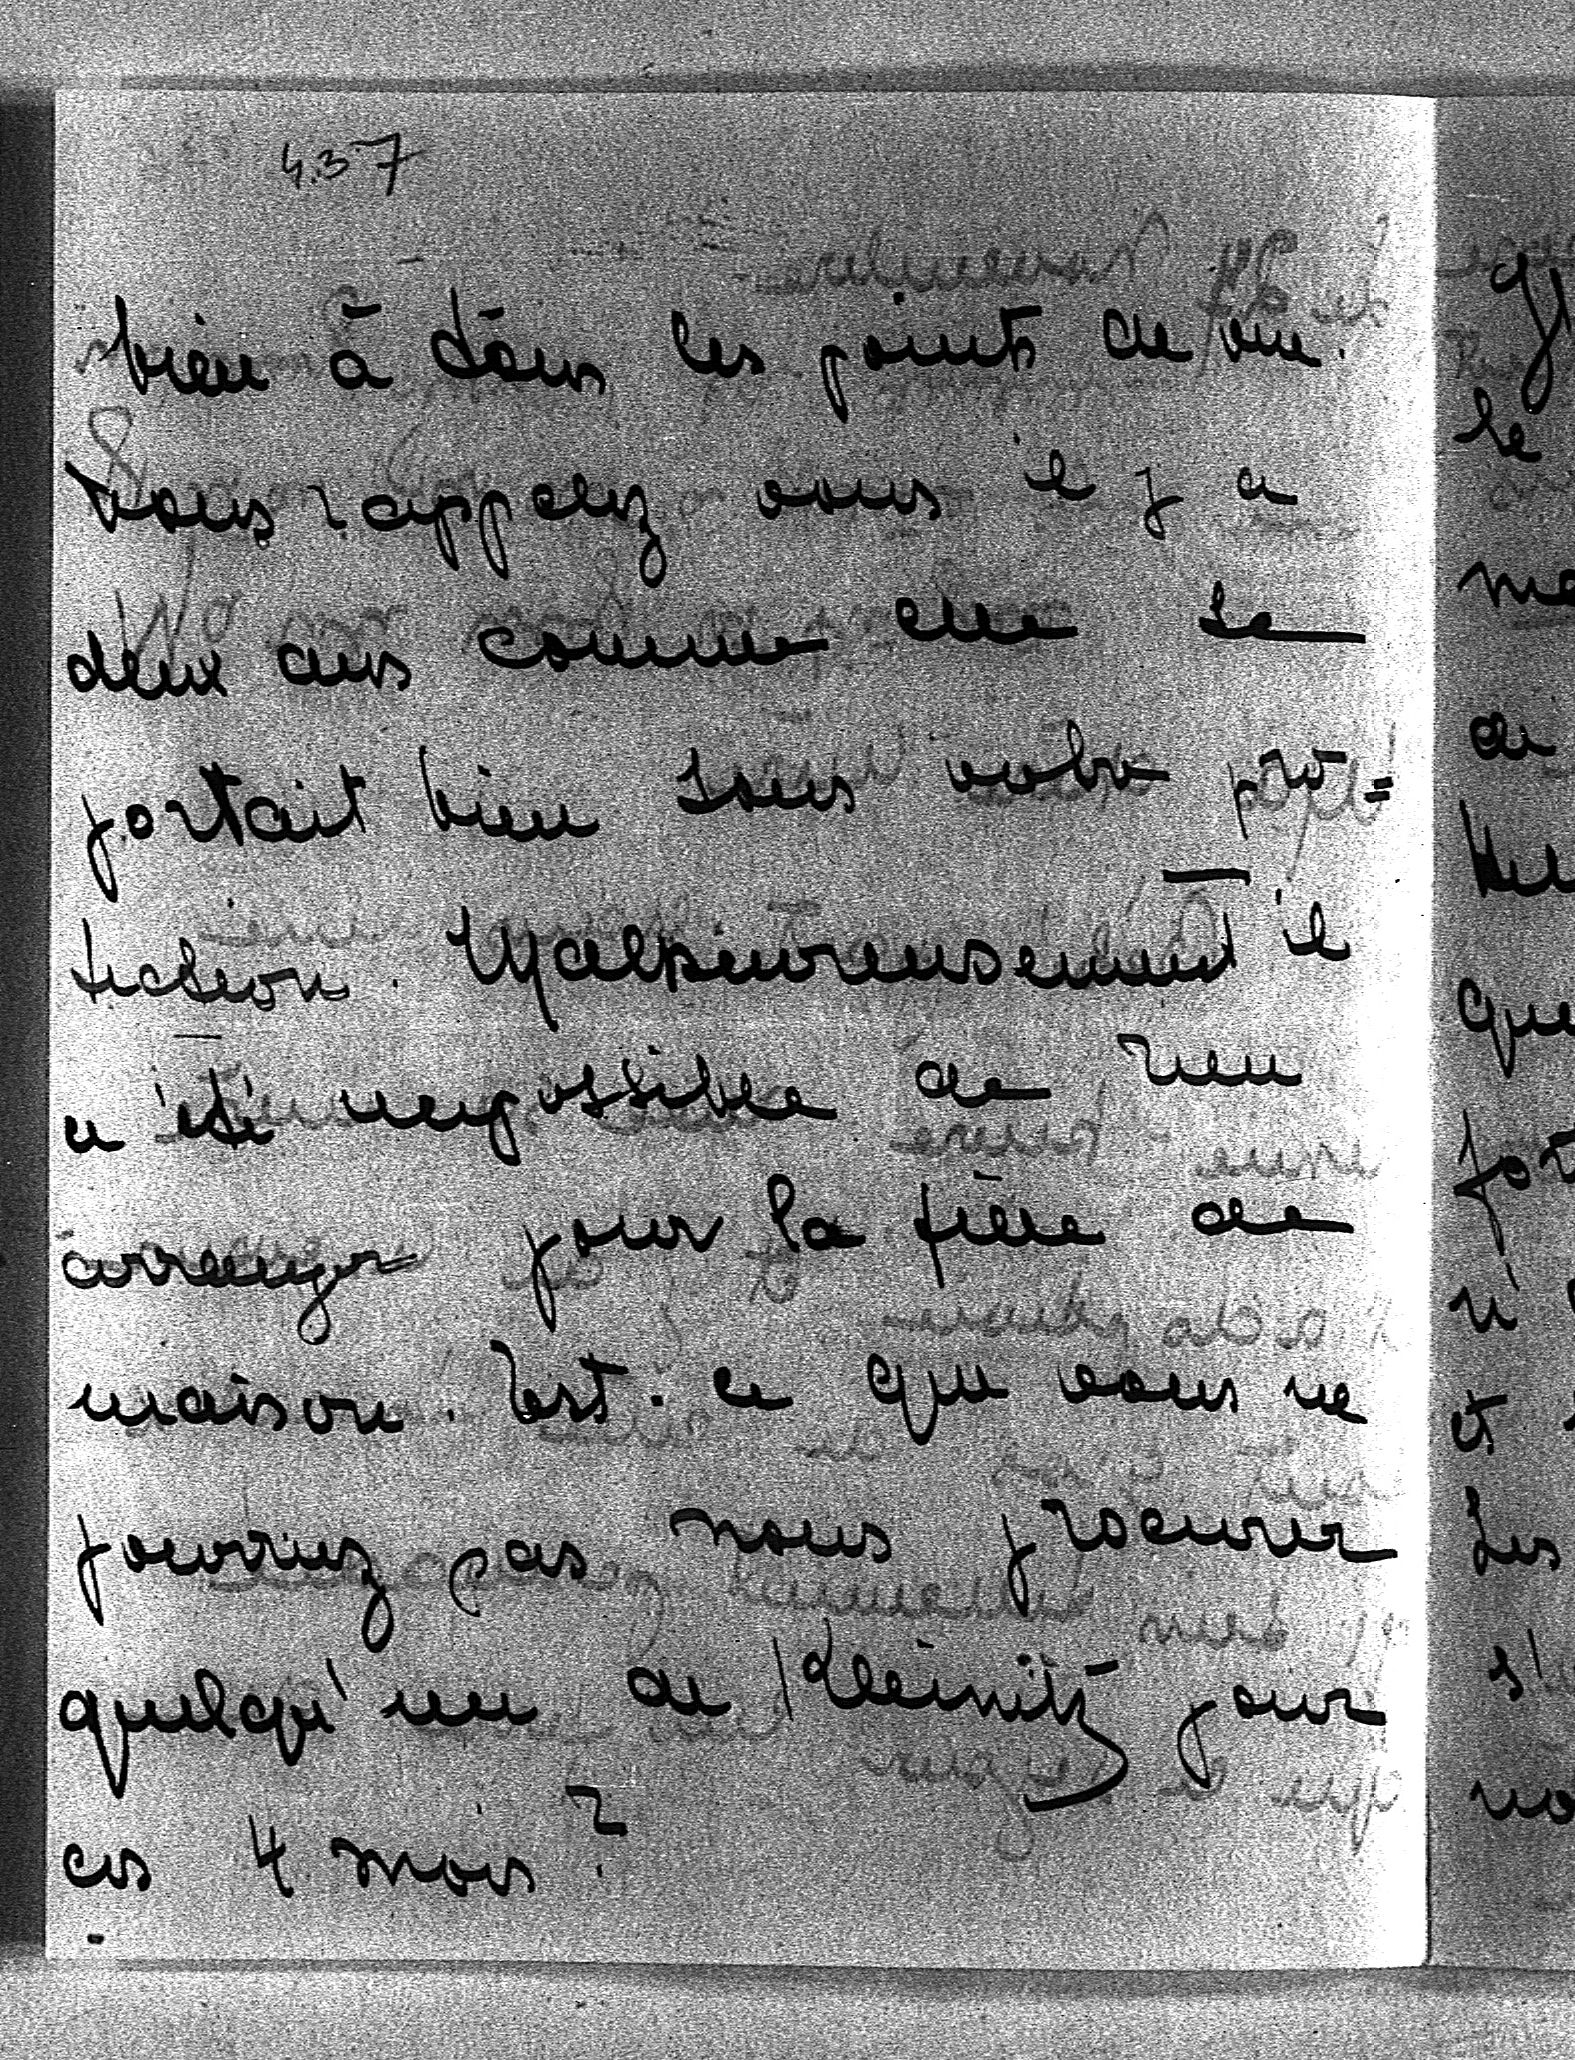 437
bien à tous les points de vue.
Vous rappelez vous il y a
deux ans comme elle se
portait bien sous votre pro=
tection. Malheureusement il
a été impossible de rien
arranger pour la fille de
maison. Est-ce que vous ne
pourriez pas nous procurer
quelqu'un de Kleinitz pour
ces 4 mois?